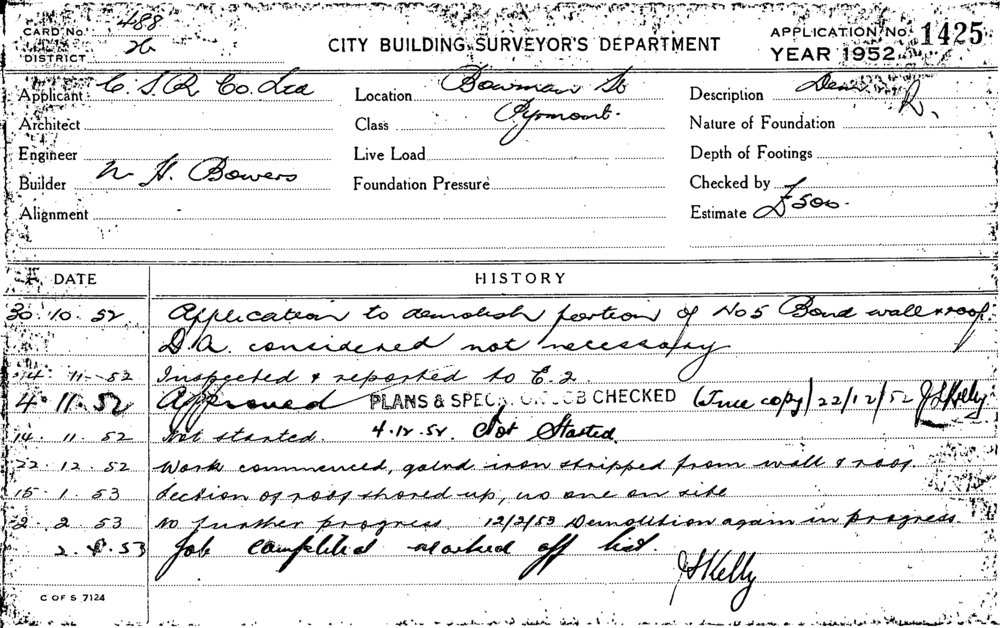 CARD No. 488
26
DISTRICT
CITY BUILDING SURVEYOR'S DEPARTMENT
APPLICATION No. 1425
YEAR 1952
Applicant C. S. R. Co. Ltd
Location Bowman St
Description Dem
R.
Architect
Class Pyrmont.
Nature of Foundation
Engineer
Live Load
Depth of Footings
Builder W H. Bowers
Foundation Pressure
Checked by
Alignment
Estimate £500.
DATE HISTORY
30. 10. 52 Application to demolish portion of No 5 Bond wall & roof.
D.A. considered not necessary
11. 52 Inspected & reported to E.2.
4. 11. 52 Approved PLANS & SPECN. ON JOB CHECKED (True copy) 22/12/52 J S Kelly
14. 11. 52 Not started. 4.12.52. Not Started.
22. 12. 52 Work commenced, galvd iron stripped from wall & roof.
15. 1. 53 Section of roof shored up, no one on site
2. 2. 53 No further progress 12/2/53 Demolition again in progress
2. 53 Job completed marked off list.
J S Kelly
C OF S 7124